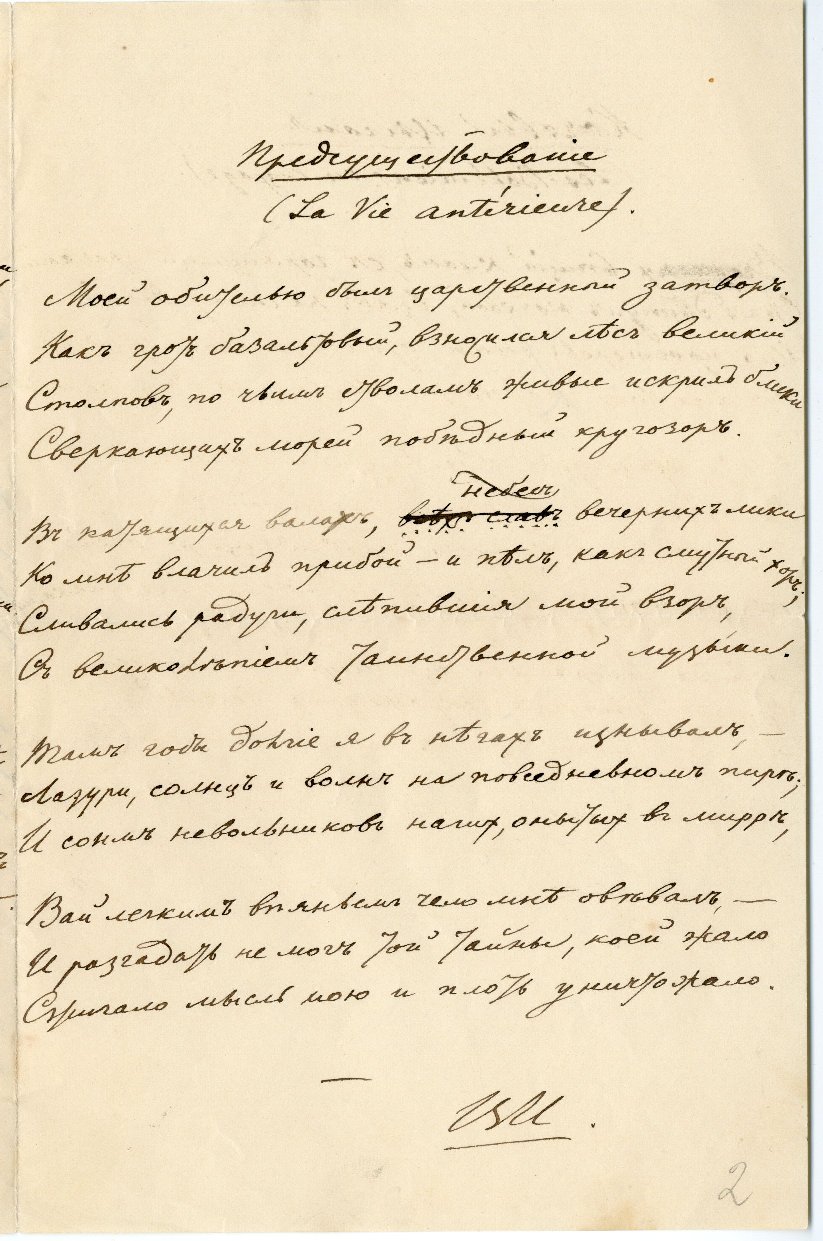 Предсуществованіе
(La Vie antérieure).
Моей обителью былъ царственный затворъ.
Какъ гротъ базальтовый, взносился лѣсъ великій
Столповъ, по чьимъ стволамъ живые искрилъ блики
Сверкающихъ морей побѣдный кругозоръ.
небесъ
Въ катящихся валахъ, всѣхъ славъ вечернихъ лики
Ко мнѣ влачилъ прибой – и пѣлъ, какъ смутный хоръ;
Сливались радуги, слѣпившія мой взоръ,
Съ великолѣпіемъ таинственной музыки.
Тамъ годы долгіе я въ нѣгахъ изнывалъ, –
Лазури, солнцъ и волнъ на повседневномъ пирѣ;
И сонмъ невольниковъ нагихъ, омытых въ миррѣ,
Вай легкимъ вѣяньемъ чело мнѣ овѣвалъ, –
И разгадать не могъ той тайны, коей жало
Сжигало мысль мою и плоть уничтожало.
–
ВИ.
2